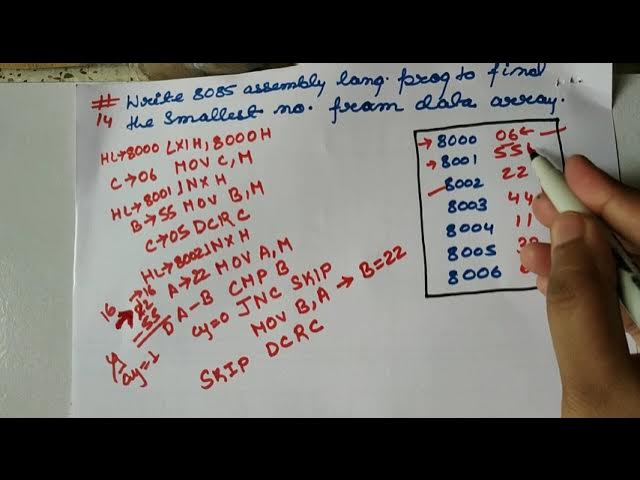 # Write 8085 assembly lang. prog to find ...
14 the smallest no. fram data array.
HL→8000 LXI H, 8000H
C→06 MOV C, M
HL→8001 INX H
B→55 MOV B, M
C→05 DCR C
HL→8002 INX H
A→22 MOV A, M
A-B CMP B
cy=0 JNC SKIP
MOV B, A → B=22
SKIP DCR C
16 →16
22
55
D
cy=1
→ 8000 06 ←
→ 8001 55
8002 22
8003 44
8004 11
8005
8006